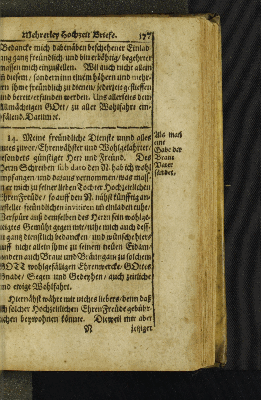 Mehrerley Hochzeit Briefe. 177
Bedancke mich dabenäben beschehener Einlad
ung gantz freundlich, und bin erbötig, begehrter
massen mich einzustellen. Will auch nicht allein
in diesem, sondern inn einem höhern und mehr-
ern ihme freündlich zu dienen, jederzeit gflissen
und bereit erfunden werden. Uns allerseits dem
Allmächtigen GOtt, zu aller Wohlfahrt em-
pfählend. Datum ɾc.
14. Meine freündliche Dienste unnd alles
gutes zuvor, Ehrenväster und Wohlgelehrter,
besonders günstiger Herr und Freünd. Des
Herrn Schreiben sub dato den N. hab ich wohl
empfangen und darauß vernommen, was mass-
er mich zu seiner lieben Tochter Hochzeitlichen
EhrenFreüde, so auff den N. nühst künfftig an-
gestellet freündlichen invitirn uñ einladen thut.
Verspüre auß demselben des Herrn sein wohlge-
neigtes Gemüth gegen mir, thue mich auch deß-
en gantz dienstlich bedancken und wünsche hier-
auff nicht allein ihme zu seinem neüen Eidam,
sondern auch Braut und Bräutigam zu solchem
GOTT wohlgefälligen Ehrenwercke, GOttes
Gnade, Segen und Gedeyhen, auch zeitliche
und ewige Wohlfahrt.
Hiernähst wähte mir nichts liebers, denn daß
ich solcher Hochzeitlichen EhrenFreüde gebühr-
lichen beywohnen könnte. Dieweil mir aber
N jetziger
Als man
eine
Gabe der
Braut
Vater
sendet.